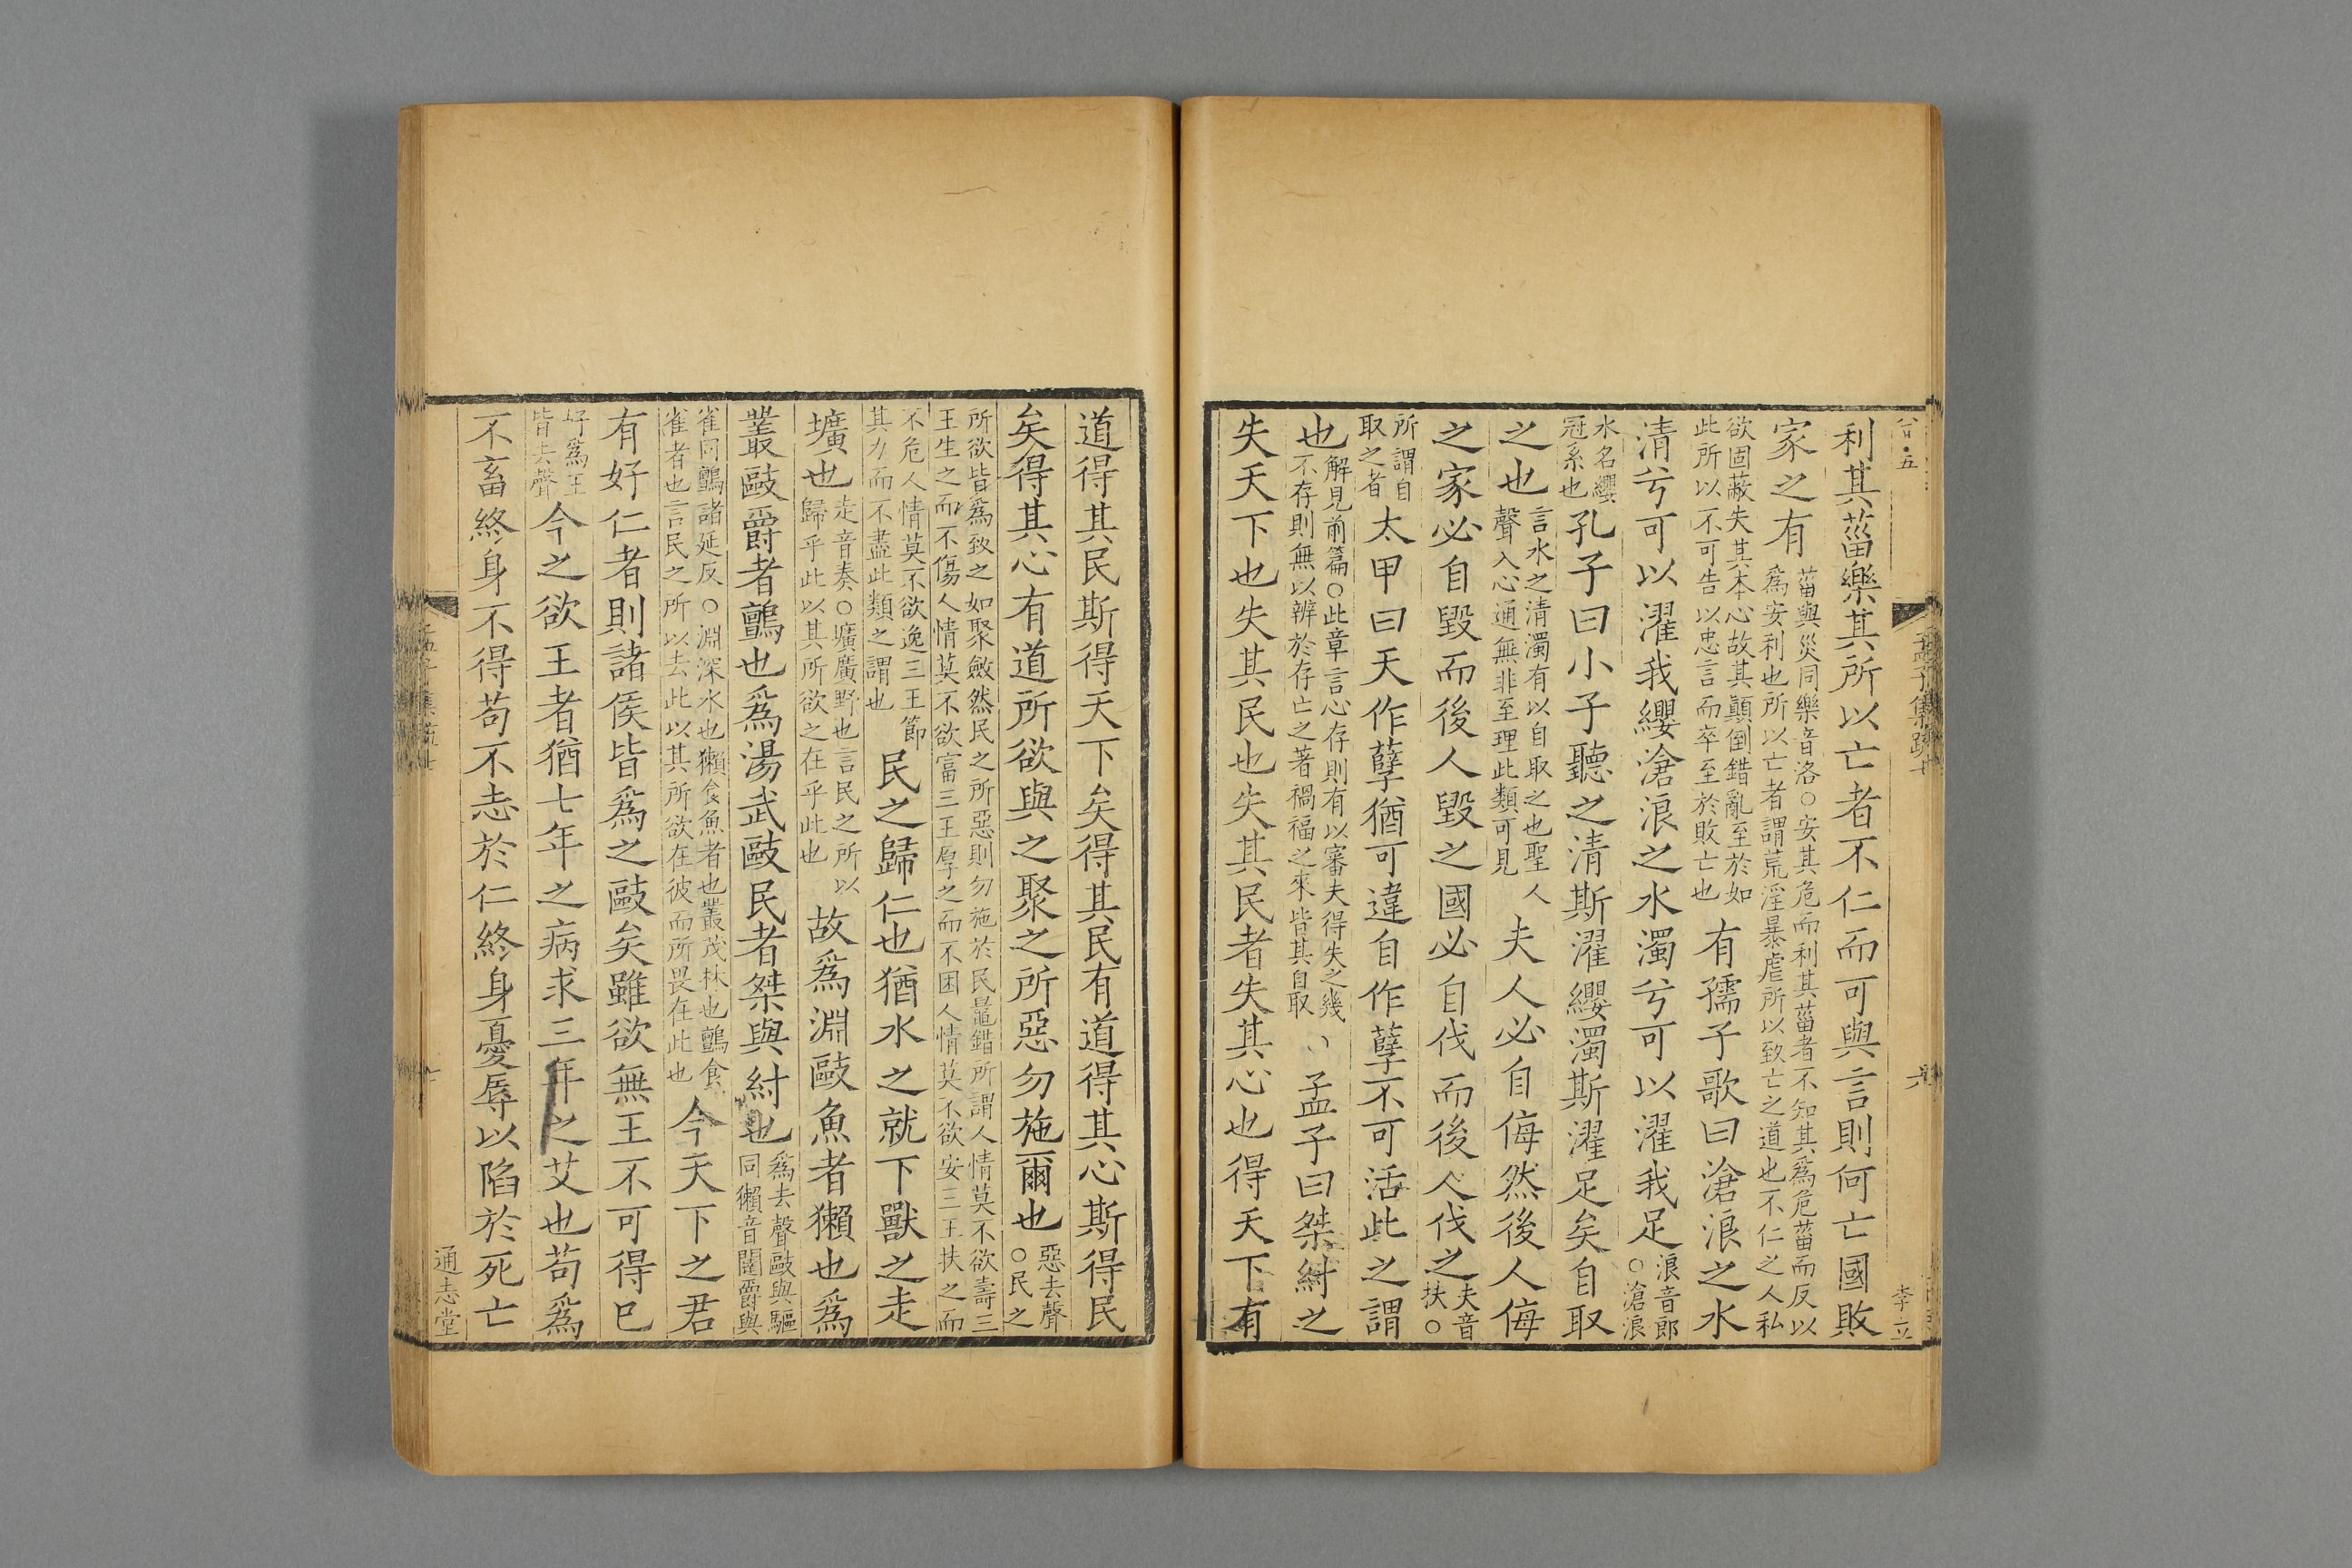 利其菑樂其所以亡者不仁而可與言則何亡國敗
家之有
菑與災同樂音洛○安其危而利其菑者不知其爲危菑而反以
爲安利也所以亡者謂荒淫暴虐所以致亡之道也不仁之人私
欲固蔽失其本心故其顛倒錯亂至於如
此所以不可告以忠言而卒至於敗亡也
有孺子歌曰滄浪之水
清兮可以濯我纓滄浪之水濁兮可以濯我足
浪音郎
○滄浪
水名纓
冠系也
孔子曰小子聽之清斯濯纓濁斯濯足矣自取
之也
言水之清濁有以自取之也聖人
聲入心通無非至理此類可見
夫人必自侮然後人侮
之家必自毀而後人毀之國必自伐而後人伐之
夫音
扶○
所謂自
取之者
太甲曰天作孽猶可違自作孽不可活此之謂
也
解見前篇○此章言心存則有以審夫得失之幾
不存則無以辨於存亡之著禍福之來皆其自取
孟子曰桀紂之
失天下也失其民也失其民者失其心也得天下有
孟子集疏七
六
李立
道得其民斯得天下矣得其民有道得其心斯得民
矣得其心有道所欲與之聚之所惡勿施爾也
惡去聲
○民之
所欲皆爲致之如聚斂然民之所惡則勿施於民鼂錯所謂人情莫不欲壽三
王生之而不傷人情莫不欲富三王厚之而不困人情莫不欲安三王扶之而
不危人情莫不欲逸三王節
其力而不盡此類之謂也
民之歸仁也猶水之就下獸之走
壙也
走音奏○壙廣野也言民之所以
歸乎此以其所欲之在乎此也
故爲淵敺魚者獺也爲
叢敺爵者鸇也爲湯武敺民者桀與紂也
爲去聲敺與驅
同獺音闥爵與
雀同鸇諸延反○淵深水也獺食魚者也叢茂林也鸇食
雀者也言民之所以去此以其所欲在彼而所畏在此也
今天下之君
有好仁者則諸侯皆爲之敺矣雖欲無王不可得已
好爲王
皆去聲
今之欲王者猶七年之病求三年之艾也苟爲
不畜終身不得苟不志於仁終身憂辱以陷於死亡
通志堂